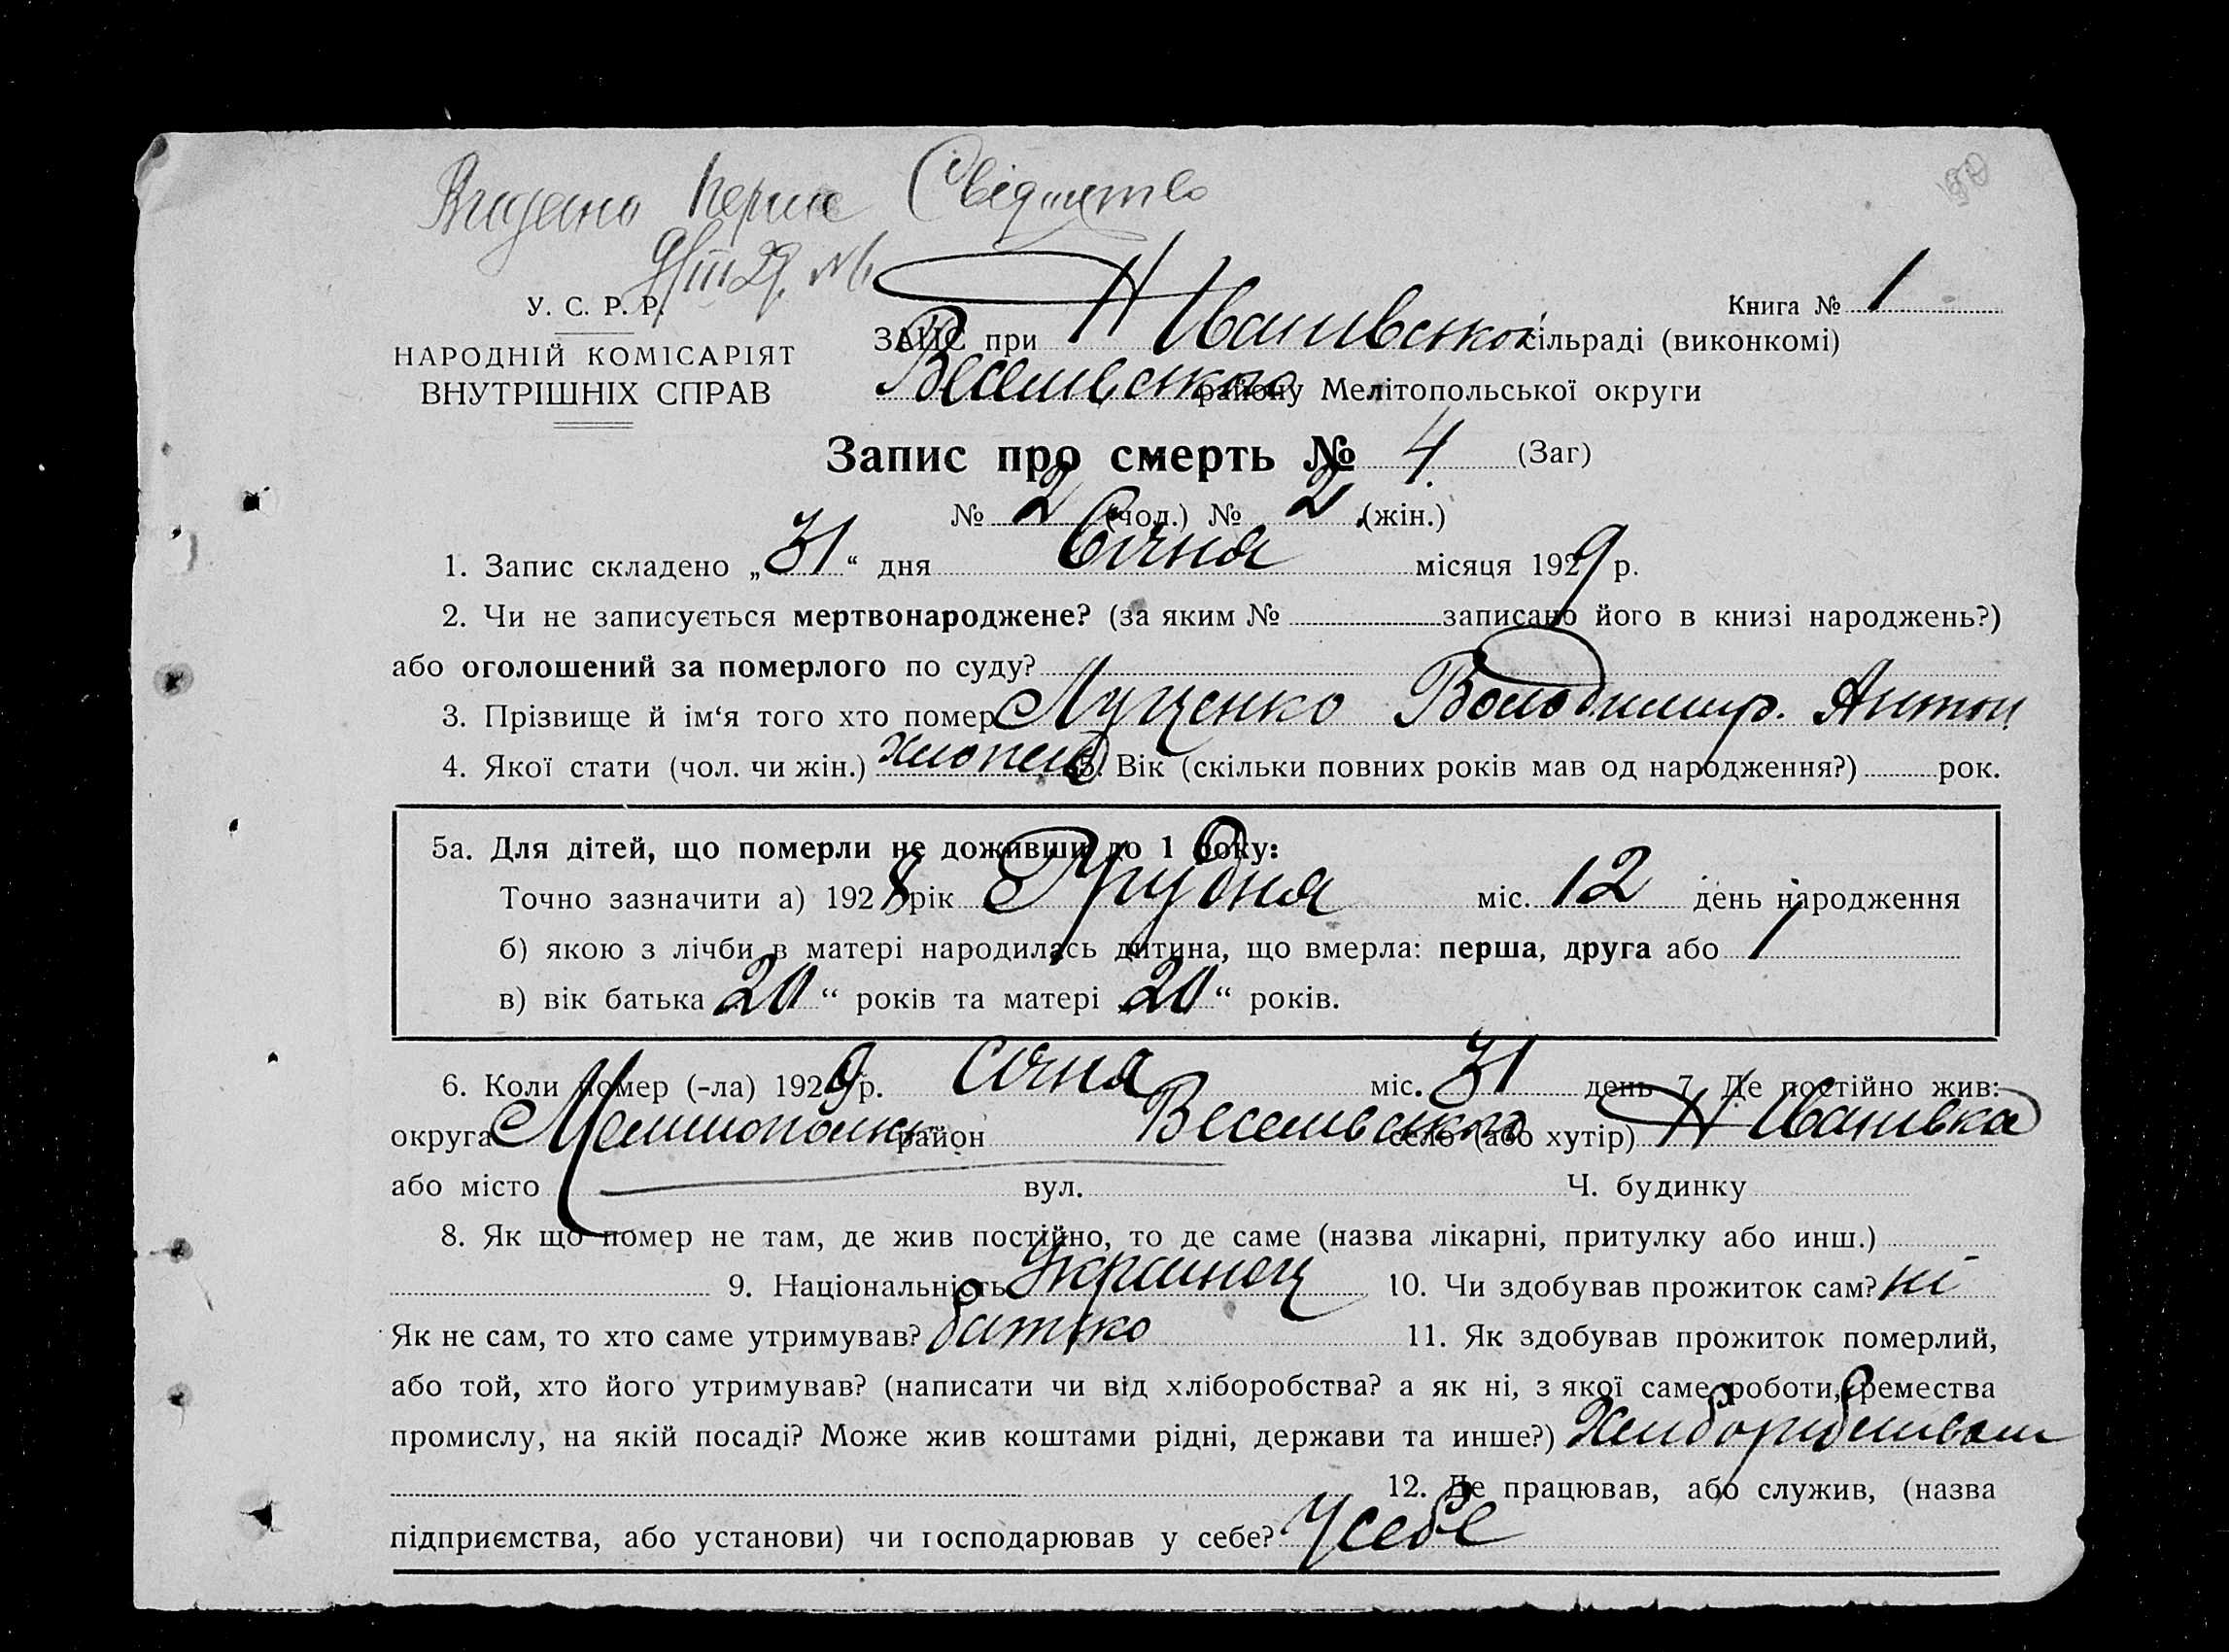 Видано перше Свідоцтво
9/III 29. №1
У. С. Р. Р.
Книга № 1
НАРОДНІЙ КОМІСАРІЯТ
ВНУТРІШНІХ СПРАВ
ЗАЦС при Н Іванівської сільраді (виконкомі)
Веселівського району Мелітопольської округи
Запис про смерть № 4. (Заг)
№ 2 (чол.) № 2 (жін.)
1. Запис складено „31“ дня Січня місяця 1929 р.
2. Чи не записується мертвонароджене? (за яким № записано його в книзі народжень?)
або оголошений за померлого по суду?
3. Прізвище й ім‘я того хто помер Луценко Володимир. Антон
4. Якої стати (чол. чи жін.) хлопець 5. Вік (скільки повних років мав од народження?) рок.
5а. Для дітей, що померли не доживши до 1 року:
Точно зазначити а) 1928 рік Грудня міс. 12 день народження
б) якою з лічби в матері народилась дитина, що вмерла: перша, друга або 1
в) вік батька 20 “ років та матері 20 “ років.
6. Коли помер (-ла) 1929 р. Січня міс. 31 день 7. Де постійно жив:
округа Мелитопольськ район Веселівського село (або хутір) Н Іванівка
або місто вул. Ч. будинку
8. Як що помер не там, де жив постійно, то де саме (назва лікарні, притулку або инш.)
9. Національність Украинец 10. Чи здобував прожиток сам? ні
Як не сам, то хто саме утримував? батько 11. Як здобував прожиток померлий,
або той, хто його утримував? (написати чи від хліборобства? а як ні, з якої саме роботи, ремества
промислу, на якій посаді? Може жив коштами рідні, держави та инше?)
12. Де працював, або служив, (назва
підприємства, або установи) чи господарював у себе? У себе